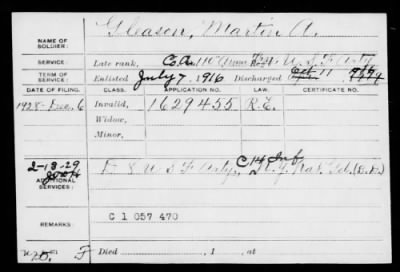 NAME OF SOLDIER: Gleason, Martin A.
SERVICE: Late rank, Co. A. 110 U.S.F. Arty
TERM OF SERVICE: Enlisted July 7, 1916 Discharged Oct 11
DATE OF FILING. CLASS. APPLICATION NO. LAW. CERTIFICATE NO.
1928-Dec. 6 Invalid, 1629455 R.E.
Widow,
Minor,
2-13-29 C 14 Inf
ADDITIONAL SERVICES: D 8 U S F Arty, N.Y. Nat. Gd.
REMARKS: C 1 057 470
F Died , 1 , at